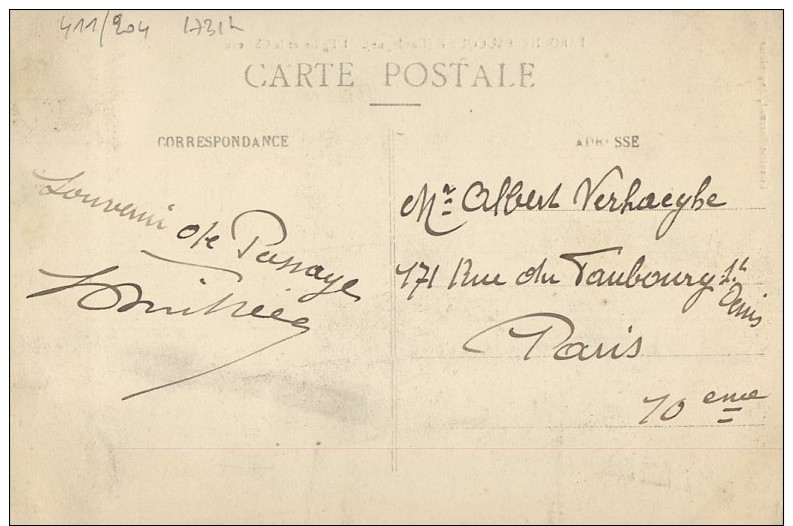 411/204
CARTE POSTALE
CORRESPONDANCE
ADRESSE
Souvenir
de Passage
Mr. Albert Verhaeghe
171 Rue du Faubourg St.
Denis
Paris
10 eme